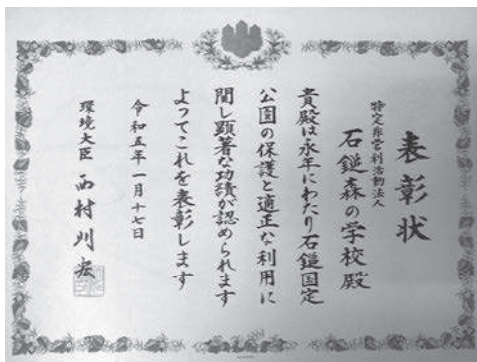 表彰状
特定非営利活動法人
石鎚森の学校殿
貴殿は永年にわたり石鎚国定
公園の保護と適正な利用に
関し顕著な功績が認められます
よってこれを表彰します
令和五年一月十七日
環境大臣 西村明宏